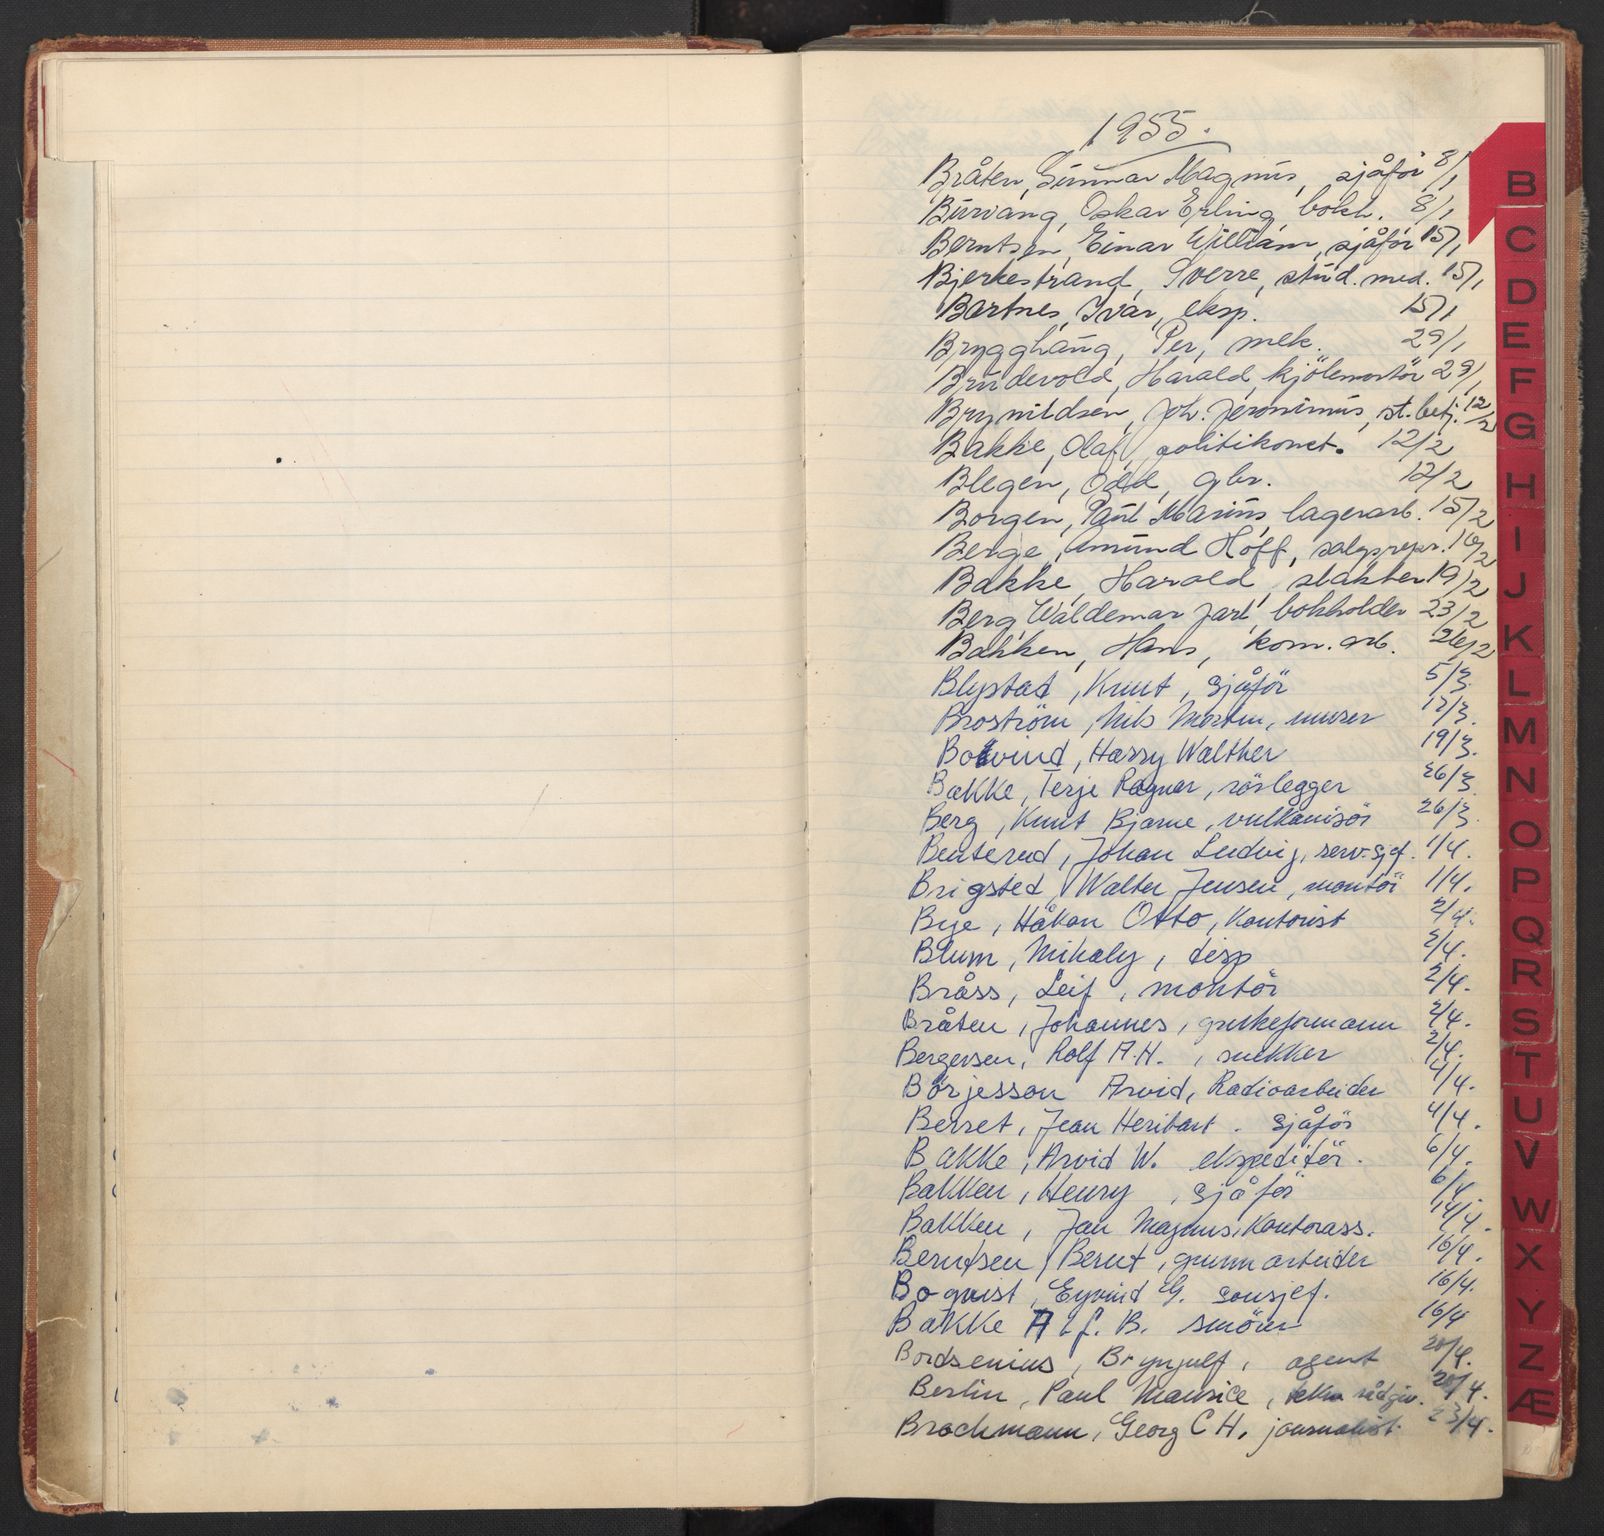 1955.
Bråten, Gunnar Magnus, sjåför 8/1
Burvang, Oskar Erling bokh. 8/1
Berntsen, Einar William, sjåför 15/1
Bjerkestrand, Sverre, stud. med. 15/1
Bartnes, Ivar, eksp. 15/1
Brygghaug, Per, mek. 29/1
Brudevold, Harald, kjölemontör 29/1
Brynildsen, Joh. Jeronimus, st.betj. 12/2
Bakke, Olaf, politikonst. 12/2
Blegen, Odd, gbr. 12/2
Borgen, Paul Marius, lagerarb. 15/2
Berge, Amund Hoff, salgsrepr. 16/2
Bakke, Harald, slakter 19/2
Berg, Waldemar Jarl, bokholder 23/2
Bakken, Hans, kom. arb. 26/2
Blystad, Knut, sjåför 5/3.
Broström, Nils Morten, murer 12/3.
Harry Walther 19/3.
Bakke, Terje Ragnar, rörlegger 26/3
Berg, Knut Bjarne, vulkanisör 26/3.
Benterud, Johan Ludvig, serv.sjef. 1/4.
Brigsted, Walter Jensen, montör 1/4.
Bye, Håkon Otto, Kontorist 2/4.
Blum, Mihaly, disp 2/4.
Bråss, Leif, montör 2/4.
Bråten, Johannes, 2/4.
Bergersen, Rolf A.H., snekker 2/4.
Börjesson Arvid, Radioarbeider 4/4.
Berset, Jean Heribart. Sjåför 4/4.
Bakke, Arvid W. ekspeditör. 6/4.
Bakken, Henry, sjåför 6/4.
Bakken, Jan Magnus, Kontorass. 14/4.
Berntsen, Bernt, grunnarbeider 16/4.
Boqvist, Eyvind G. sousjef. 16/4.
Bakke Alf. B. smörer 16/4
Bordsenius, Brynjulf, agent 20/4.
Berlin, Paul Maurice, tekn rådgiv. 20/4.
Brochmann, Georg C H, journalist. 23/4.
B
C
D
E
F
G
H
I
J
K
L
M
N
O
P
Q
R
S
T
U
V
W
X
Y
Z
Æ